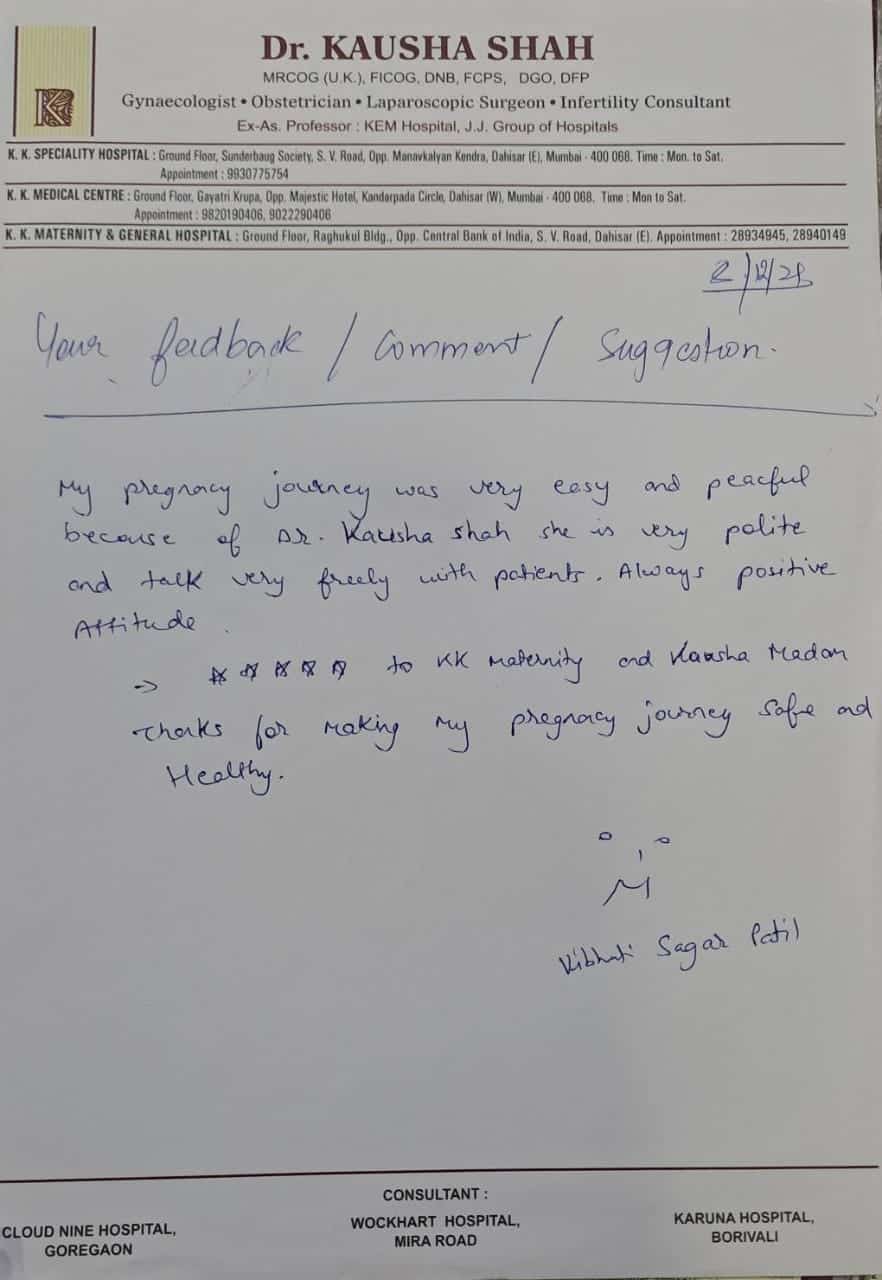 Dr. KAUSHA SHAH
MRCOG (U.K.), FICOG, DNB, FCPS, DGO, DFP
Gynaecologist • Obstetrician • Laparoscopic Surgeon • Infertility Consultant
Ex-As. Professor : KEM Hospital, J.J. Group of Hospitals
K. K. SPECIALITY HOSPITAL : Ground Floor, Sunderbaug Society, S. V. Road, Opp. Manavkalyan Kendra, Dahisar (E), Mumbai - 400 068. Time : Mon. to Sat.
Appointment : 9930775754
K. K. MEDICAL CENTRE : Ground Floor, Gayatri Krupa, Opp. Majestic Hotel, Kandarpada Circle, Dahisar (W), Mumbai - 400 068. Time : Mon to Sat.
Appointment : 9820190406, 9022290406
K. K. MATERNITY & GENERAL HOSPITAL : Ground Floor, Raghukul Bldg., Opp. Central Bank of India, S. V. Road, Dahisar (E). Appointment : 28934945, 28940149
Your feedback / Comment / Suggestion.
My pregnacy journey was very easy and peacful
because of Dr. Kausha Shah she is very polite
and talk very freely with patients. Always positive
Attitude.
→ ☆ ☆ ☆ ☆ ☆ to KK Maternity and Kausha Madam
Thanks for Making My pregnacy journey Safe and
Healthy.
Sagar Patil
CONSULTANT :
CLOUD NINE HOSPITAL,
GOREGAON
WOCKHART HOSPITAL,
MIRA ROAD
KARUNA HOSPITAL,
BORIVALI